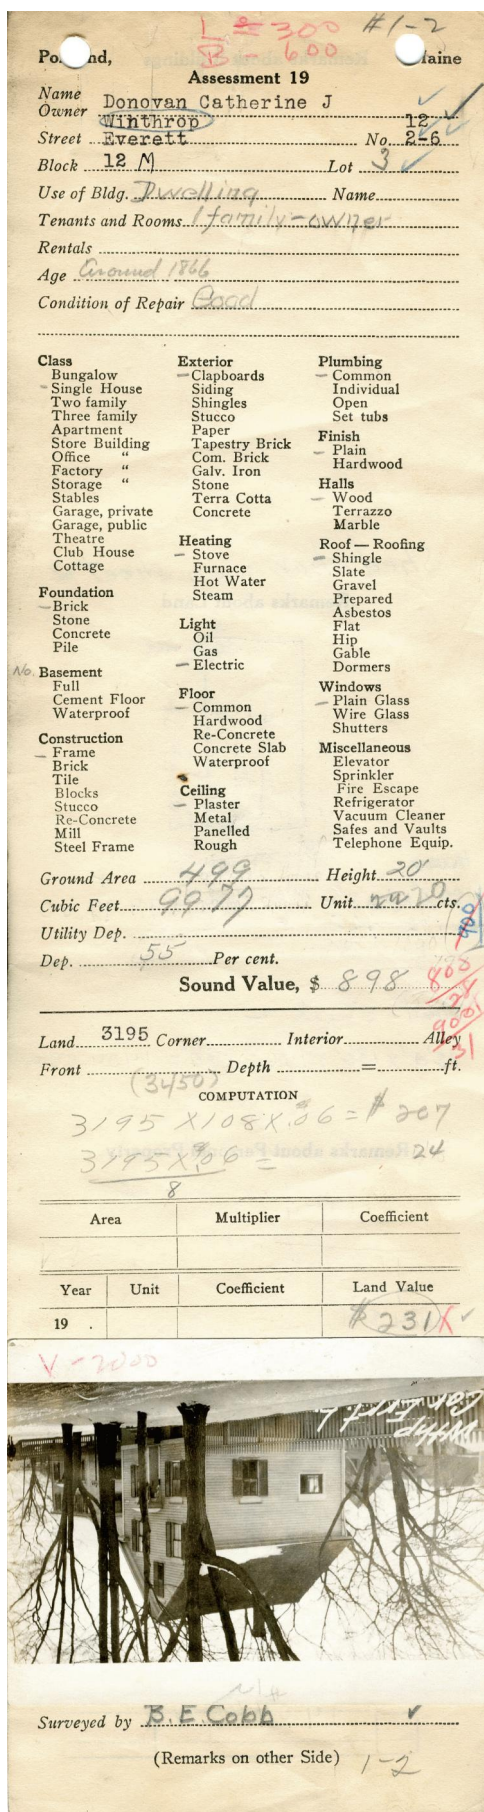 L = 300 #1-2
B - 600
Po nd, Maine
Assessment 19
Name
Owner Donovan Catherine J
Winthrop 12
Street Everett No. 2-6
Block 12 M Lot 3
Use of Bldg. Dwelling Name
Tenants and Rooms 1 family-owner
Rentals
Age Around 1866
Condition of Repair Good
Class
Bungalow
- Single House
Two family
Three family
Apartment
Store Building
Office "
Factory "
Storage "
Stables
Garage, private
Garage, public
Theatre
Club House
Cottage
Foundation
- Brick
Stone
Concrete
Pile
No. Basement
Full
Cement Floor
Waterproof
Construction
- Frame
Brick
Tile
Blocks
Stucco
Re-Concrete
Mill
Steel Frame
Exterior
- Clapboards
Siding
Shingles
Stucco
Paper
Tapestry Brick
Com. Brick
Galv. Iron
Stone
Terra Cotta
Concrete
Heating
- Stove
Furnace
Hot Water
Steam
Light
Oil
Gas
- Electric
Floor
- Common
Hardwood
Re-Concrete
Concrete Slab
Waterproof
Ceiling
- Plaster
Metal
Panelled
Rough
Plumbing
- Common
Individual
Open
Set tubs
Finish
- Plain
Hardwood
Halls
- Wood
Terrazzo
Marble
Roof — Roofing
- Shingle
Slate
Gravel
Prepared
Asbestos
Flat
Hip
Gable
Dormers
Windows
- Plain Glass
Wire Glass
Shutters
Miscellaneous
Elevator
Sprinkler
Fire Escape
Refrigerator
Vacuum Cleaner
Safes and Vaults
Telephone Equip.
Ground Area 499 Height 20
Cubic Feet 9977 Unit 20 cts.
Utility Dep. 900
Dep. 55 Per cent.
Sound Value, $ 898 800
24
900
31
Land 3195 Corner Interior Alley
Front Depth = ft.
(3450)
COMPUTATION
3195 X 108 X .06 = $ 207
3195 X .06 = 24
8
Area Multiplier Coefficient
Year Unit Coefficient Land Value
19 . $ 231 X
V - 2000
Surveyed by B. E. Cobb
(Remarks on other Side) 1-2